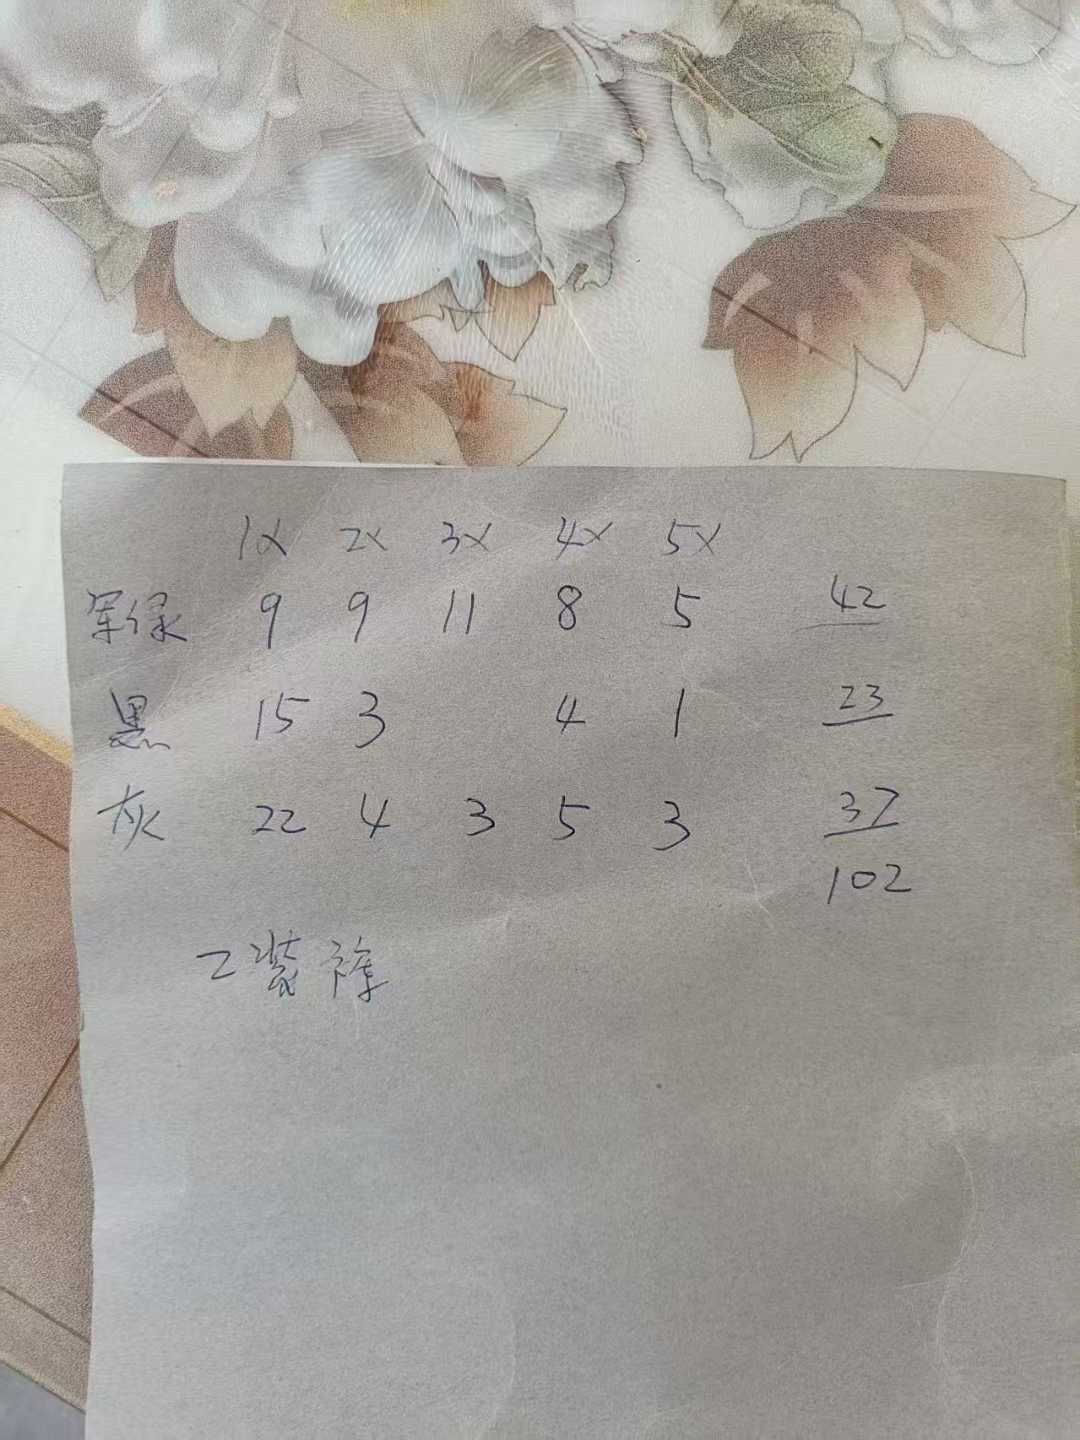 1X 2X 3X 4X 5X
军绿 9 9 11 8 5 42
黑 15 3 4 1 23
灰 22 4 3 5 3 37
102
工装裤